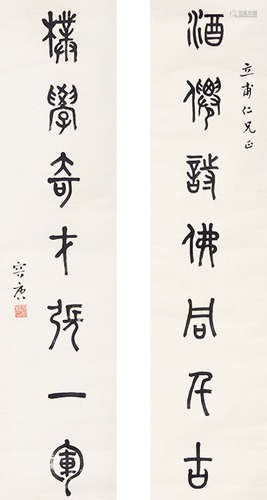 酒僊詩佛同千古
立甫仁兄正
樸學奇才張一軍
容庚